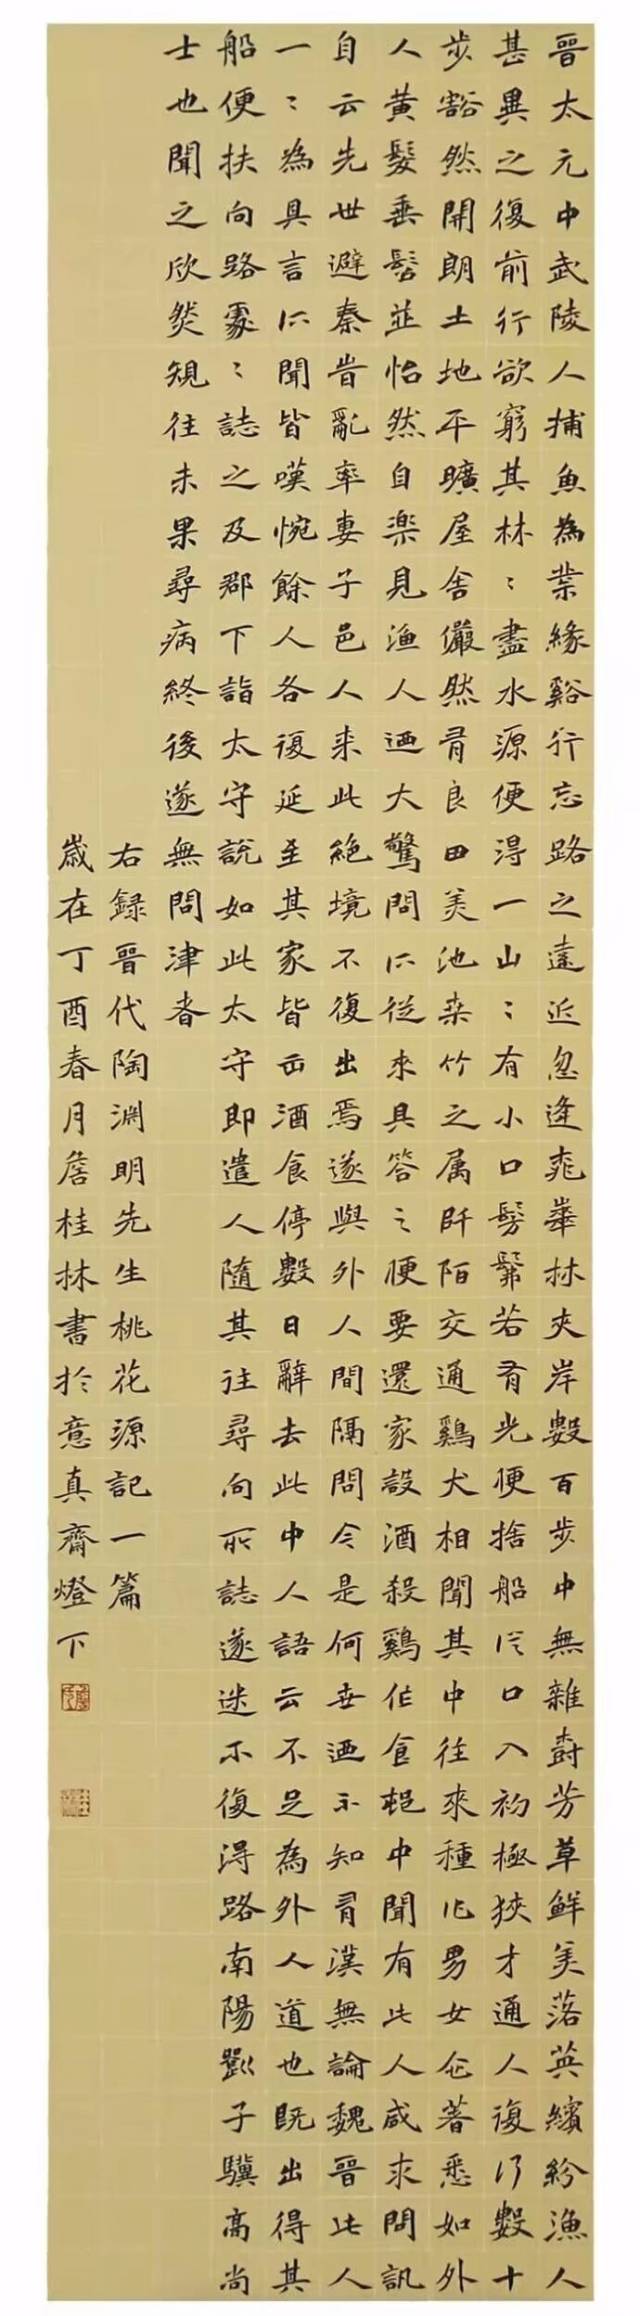 晉太元中武陵人捕魚為業緣谿行忘路之遠近忽逢桃華林夾岸數百步中無雜樹芳草鮮美落英繽紛漁人
甚異之復前行欲窮其林〻盡水源便得一山〻有小口髣髴若有光便捨船從口入初極狹才通人復行數十
步豁然開朗土地平曠屋舍儼然有良田美池桒竹之属阡陌交通鷄犬相聞其中往來種作男女衣著悉如外
人黃髮垂髫並怡然自樂見漁人迺大驚問所從來具答之便要還家設酒殺鷄作食邨中聞有此人咸來問訊
自云先世避秦昔亂率妻子邑人来此絕境不復出焉遂與外人間隔問今是何世迺不知有漢無論魏晉此人
一〻為具言所聞皆嘆惋餘人各復延至其家皆出酒食停數日辭去此中人語云不足為外人道也既出得其
船便扶向路處〻誌之及郡下詣太守說如此太守即遣人隨其往尋向所誌遂迷不復得路南陽劉子驥高尚
士也聞之欣然規往未果尋病終後遂無問津者
右録晉代陶淵明先生桃花源記一篇
歲在丁酉春月詹桂林書於意真齋燈下